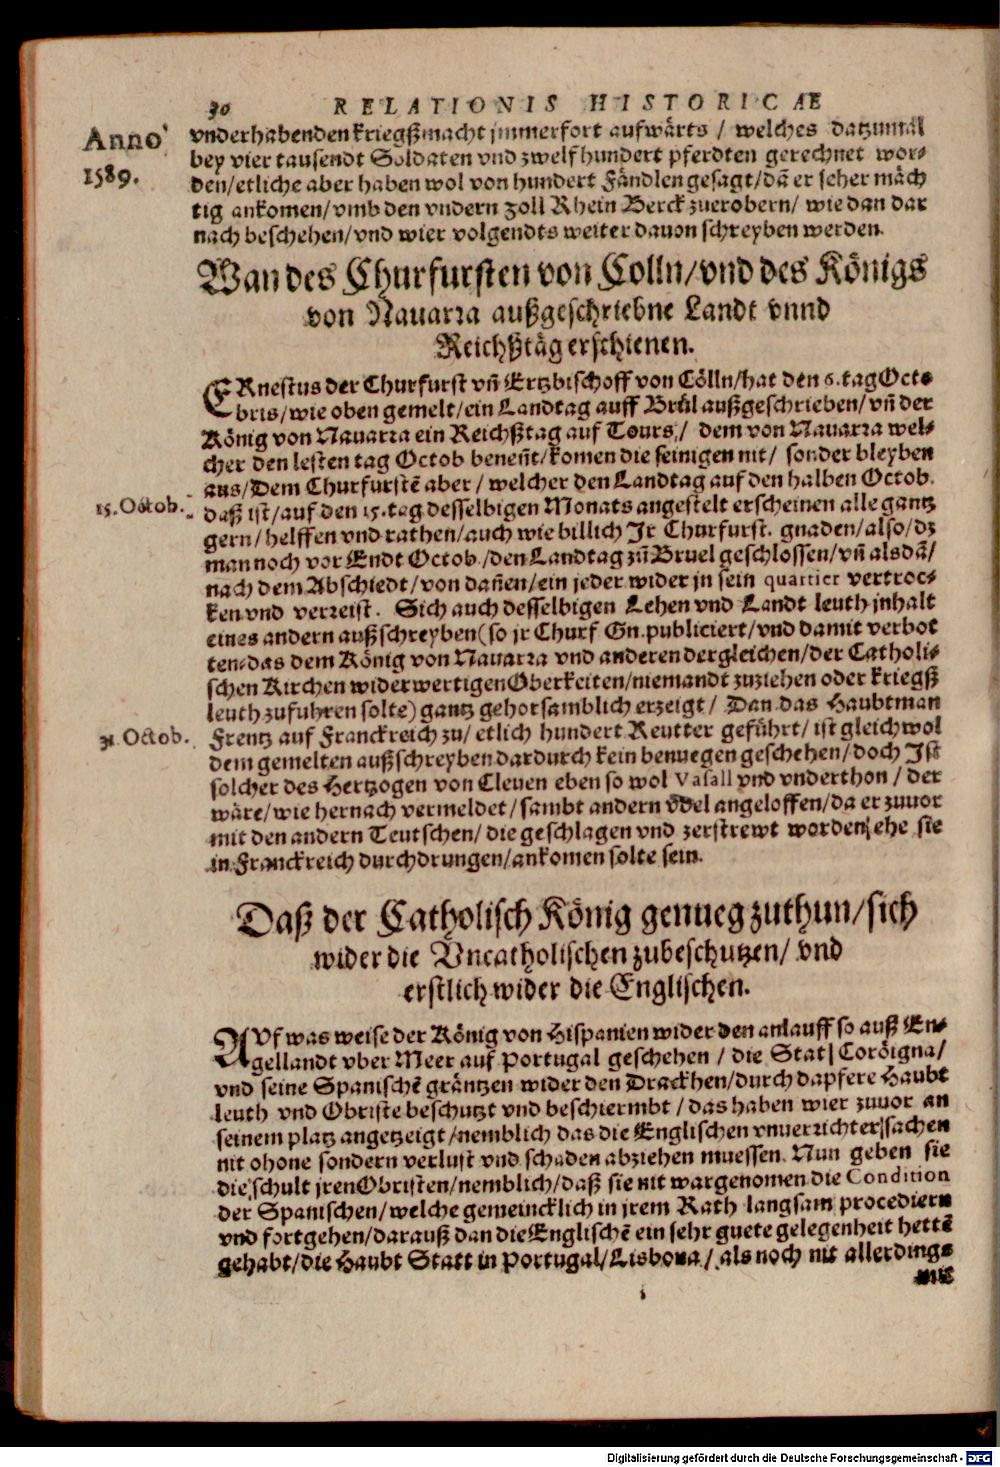 30 RELATIONIS HISTORICAE
Anno
1589.
vnderhabenden kriegßmacht jmmerfort aufwärts / welches datzumal
bey vier tausendt Soldaten vnd zwelf hundert pferdten gerechnet wor-
den/etliche aber haben wol von hundert Fändlen gesagt/dā er seher mäch
tig ankomen/vmb den vndern zoll Rhein Berck zuerobern/ wie dan dar
nach beschehen/vnd wier volgendts weiter dauon schreyben werden.
Wan des Churfursten von Colln/vnd des Königs
von Nauarra außgeschriebne Landt vnnd
Reichßtäg erschienen.
ERnestus der Churfurst vn̄ Ertzbischoff von Cölln/hat den 6. tag Octo-
bris/wie oben gemelt/ein Landtag auff Brül außgeschrieben/vn̄ der
König von Nauarra ein Reichßtag auf Tours/ dem von Nauarra wel-
cher den lesten tag Octob benen̄t/komen die seinigen nit/ sonder bleyben
aus/Dem Churfurstē aber / welcher den Landtag auf den halben Octob.
15. Octob.
daß ist/auf den 15. tag desselbigen Monats angestelt erscheinen alle gantz
gern/helffen vnd rathen/auch wie billich Jr Churfurst. gnaden/also/dz
man noch vor Endt Octob./den Landtag zū Bruel geschlossen/vn̄ alsdā/
nach dem Abschiedt/von dan̄en/ein jeder wider jn sein quartier vertroc-
ken vnd verreist. Sich auch desselbigen Lehen vnd Landt leuth jnhalt
eines andern außschreyben(so jr Churf Gn. publiciert/vnd damit verbot
ten-das dem König von Nauarra vnd anderen dergleichen/der Catholi-
schen Kirchen widerwertigen Oberkeiten/niemandt zuziehen oder kriegß
leuth zufuhren solte) gantz gehorsamblich erzeigt / Dan das Haubtman
31. Octob.
Frentz auf Franckreich zu/ etlich hundert Reutter geführt/ ist gleich wol
dem gemelten außschreyben dardurch kein benuegen geschehen/doch Jst
solcher des Hertzogen von Cleuen eben so wol Vasall vnd vnderthon / der
wäre/wie hernach vermeldet/sambt andern vbel angeloffen/da er zuuor
mit den andern Teutschen/ die geschlagen vnd zerstrewt worden, ehe sie
in Franckreich durchdrungen/ankomen solte sein.
Daß der Catholisch König genueg zuthun/sich
wider die Vncatholischen zubeschutzen/ vnd
erstlich wider die Englischen.
AVf was weise der König von Hispanien wider den anlauff so auß En-
gellandt vber Meer auf Portugal geschehen / die Statt Coröigna/
vnd seine Spanischē gräntzen wider den Drackhen/durch dapfere Haubt
leuth vnd Obriste beschutzt vnd beschiermbt / das haben wier zuuor an
seinem platz angetzeigt/nemblich das die Englischen vnuerrichter sachen
nit ohone sondern verlust vnd schaden abziehen muessen. Nun geben sie
die schult jren Obristen/nemblich/daß sie nit wargenomen die Condition
der Spanischen/welche gemeincklich in jrem Rath langsam procediern
vnd fortgehen/darauß dan die Englischē ein sehr guete gelegenheit hettē
gehabt/die Haubt Statt in Portugal/Lisbona/ als noch nit allerdings
mit
Digitalisierung gefördert durch die Deutsche Forschungsgemeinschaft - DFG